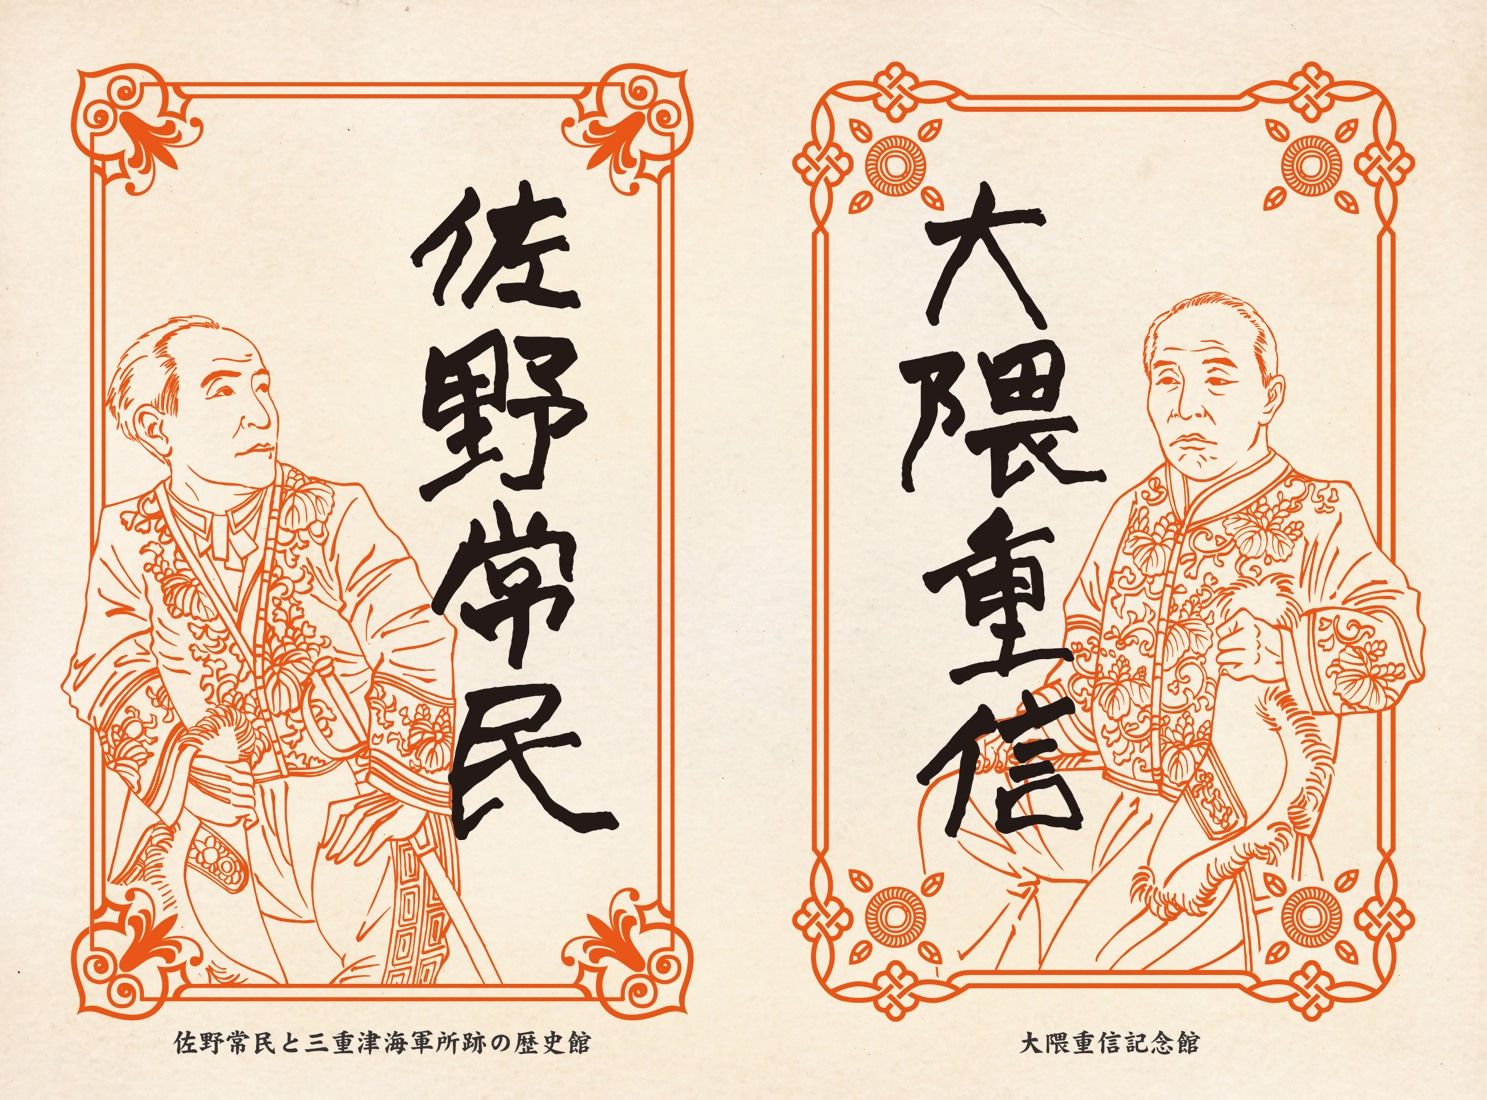 佐野常民
佐野常民と三重津海軍所跡の歴史館
大隈重信
大隈重信記念館